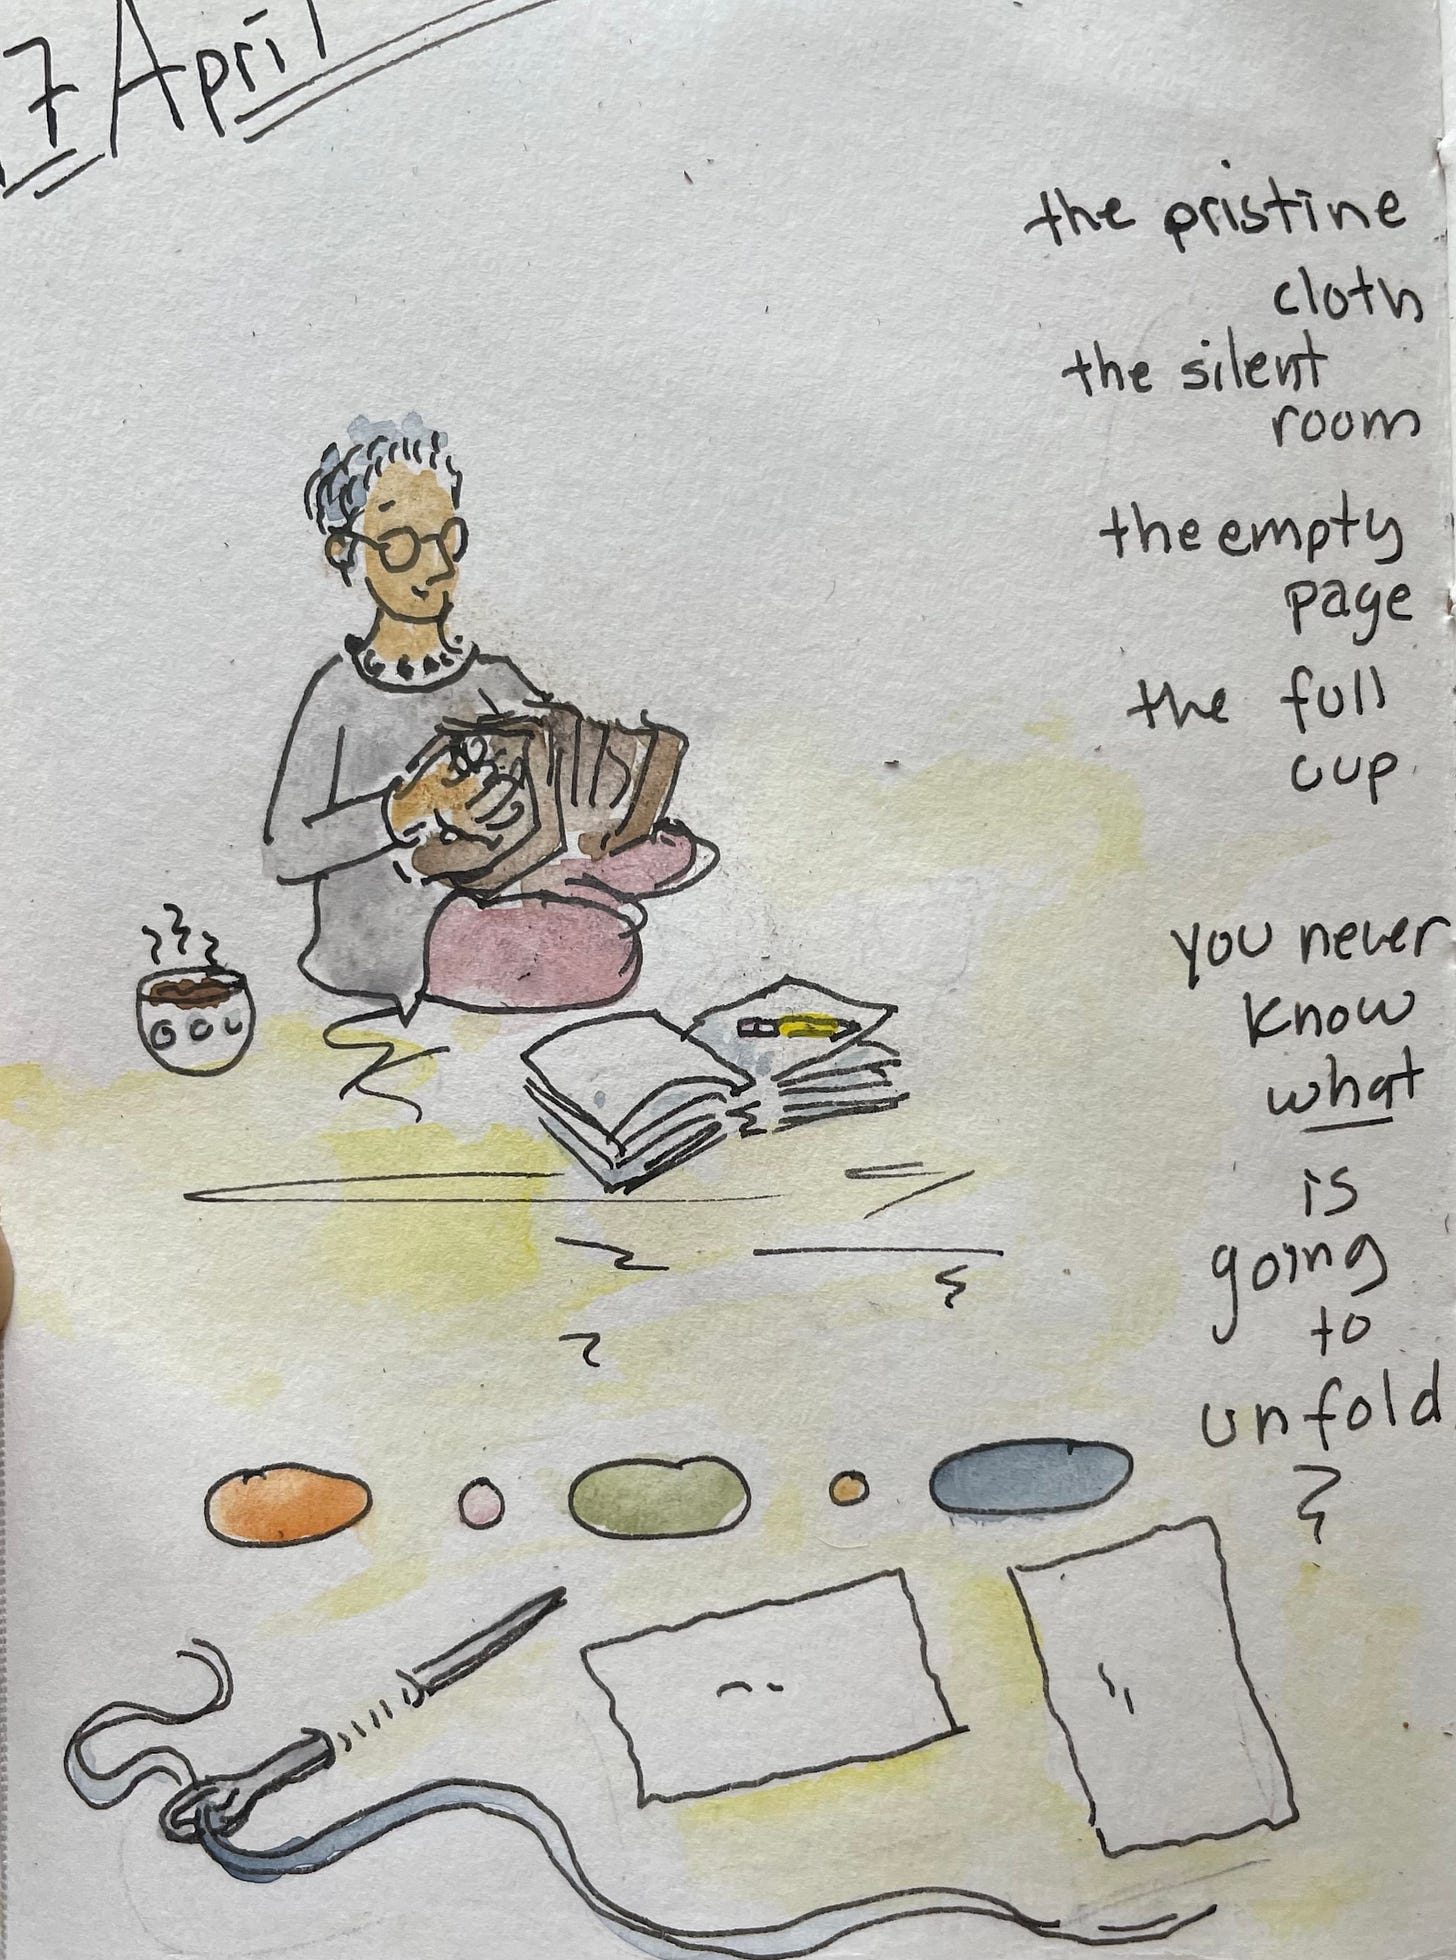 7 April
the pristine
cloth
the silent
room
the empty
page
the full
cup
you never
know
what
is
going
to
unfold